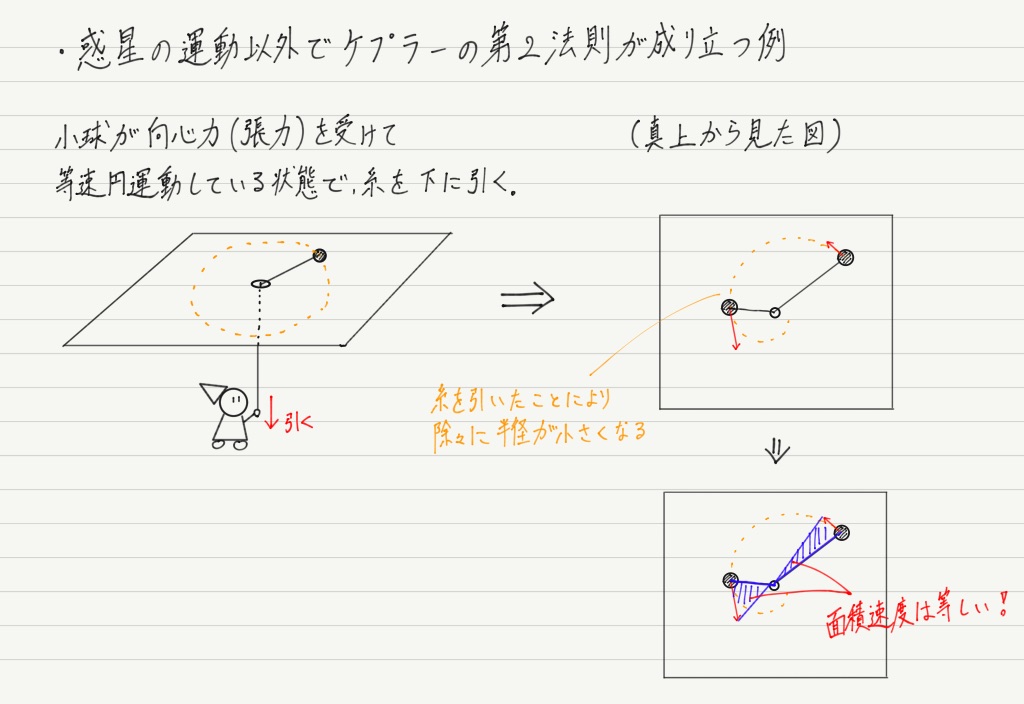 ・惑星の運動以外でケプラーの第2法則が成り立つ例
小球が向心力(張力)を受けて
等速円運動している状態で,糸を下に引く.
(真上から見た図)
引く
糸を引いたことにより
除々に半径が小さくなる
面積速度は等しい!